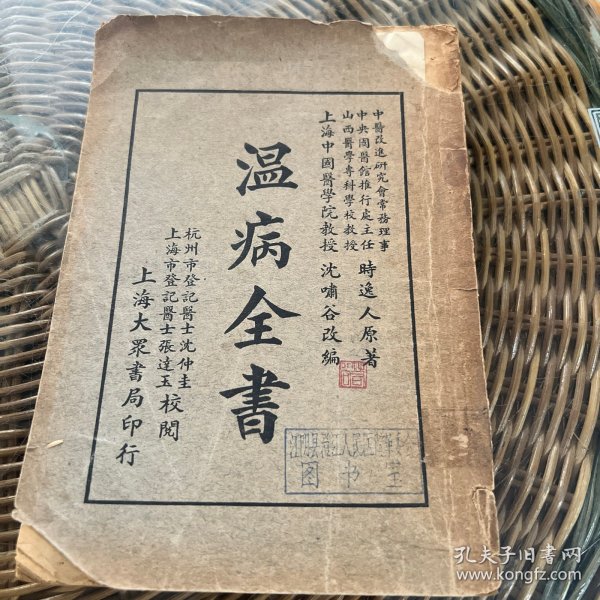 中醫改進研究會常務理事
中央國醫館推行處主任
山西醫學專科學校教授
時逸人原著
上海中國醫學院教授 沈嘯谷改編
温病全書
杭州市登記醫士沈仲圭
上海市登記醫士張達玉
校閱
上海大眾書局印行
图书室
孔夫子旧书网
www.kongfz.com